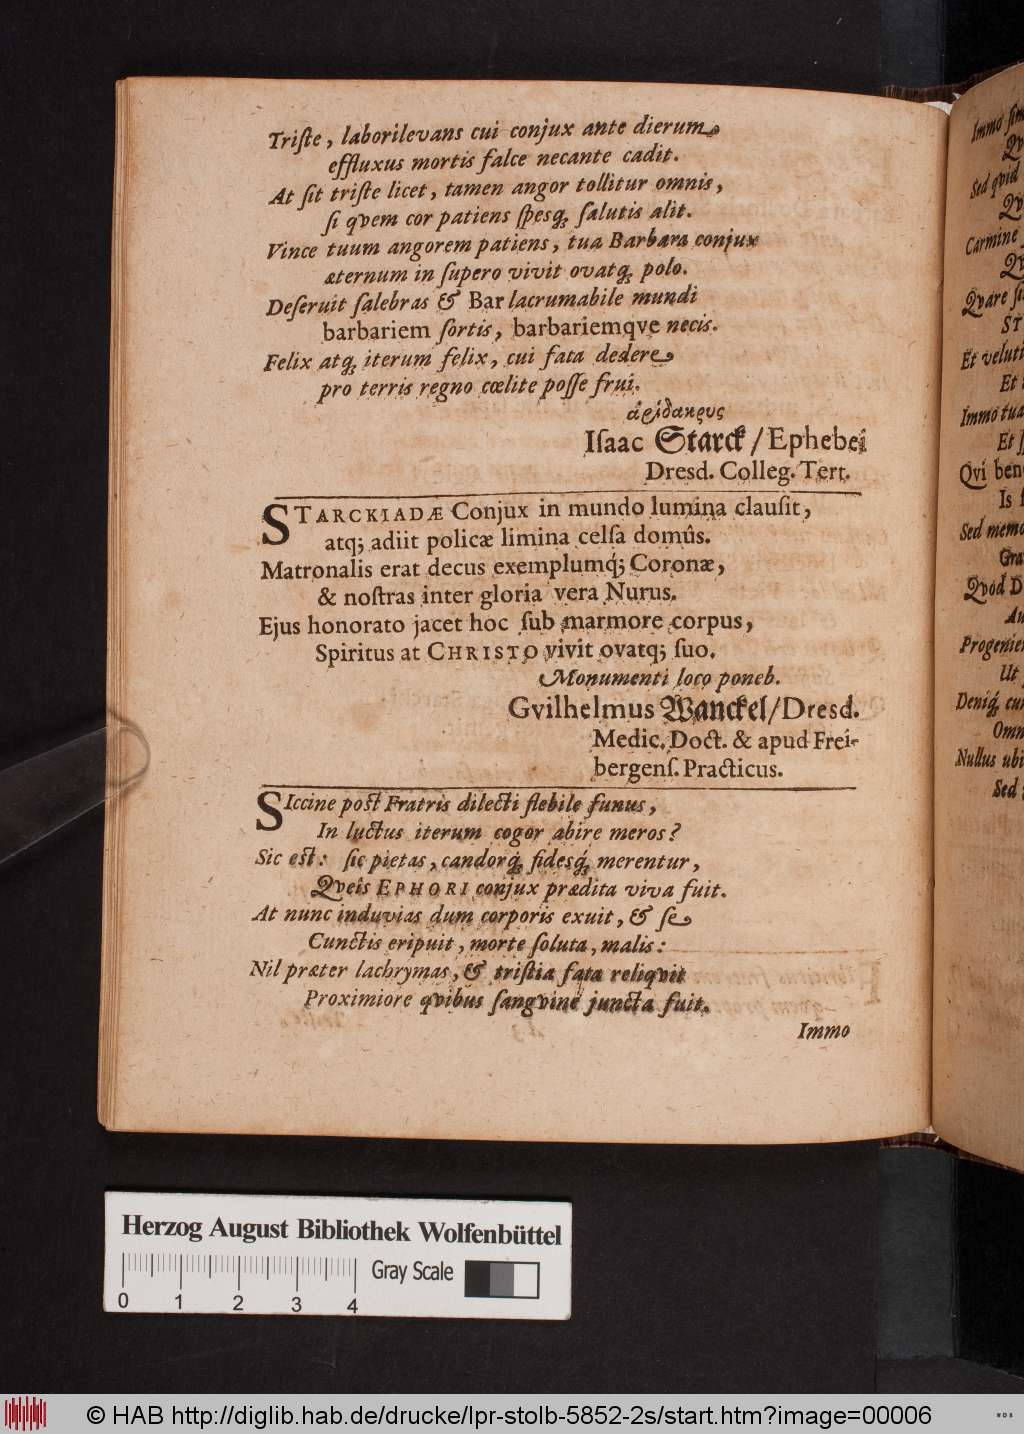 Triſte, laborilevans cui conjux ante dierum
effluxus mortis falce necante cadit.
At ſit triſte licet, tamen angor tollitur omnis,
ſi qvem cor patiens ſpesq́ꝫ ſalutis alit.
Vince tuum angorem patiens, tua Barbara conjux
æternum in ſupero vivit ovatq́ꝫ polo.
Deſeruit ſalebras & Bar lacrumabile mundi
barbariem ſortis, barbariemqve necis.
Felix atq́ꝫ iterum felix, cui fata dedere
pro terris regno cœlite poſſe frui.
ἀριδακρυς
Iſaac Starck / Ephebei
Dresd. Colleg. Tert.
STARCKIADÆ Conjux in mundo lumina clauſit,
atq; adiit policæ limina celſa domûs.
Matronalis erat decus exemplumq́; Coronæ,
& noſtras inter gloria vera Nurus.
Ejus honorato jacet hoc ſub marmore corpus,
Spiritus at CHRISTO vivit ovatq; ſuo.
Monumenti loco poneb.
Gvilhelmus Wanckel / Dresd.
Medic. Doct. & apud Frei-
bergenſ. Practicus.
SIccine poſt Fratris dilecti flebile funus,
In luctus iterum cogor abire meros?
Sic eſt: ſic pietas, candorq́ꝫ fidesq́ꝫ merentur,
Qveîs EPHORI conjux prædita viva fuit.
At nunc induvias dum corporis exuit, & ſe
Cunctis eripuit, morte ſoluta, malis:
Nil præter lachrymas, & triſtia fata reliqvit
Proximiore qvibus ſangvine juncta fuit.
Immo
Immo
Qv
Sed qvid
Qv
Carmine
Qv
Qvare
ST
Et veluti
Et
Immo tua
Et
Qvi ben
Is
Sed memo
Gra
Qvod D
Au
Progenie
Ut
Deniq́ꝫ cu
Omn
Nullus ubi
Sed
Herzog August Bibliothek Wolfenbüttel
0 1 2 3 4 Gray Scale
© HAB http://diglib.hab.de/drucke/lpr-stolb-5852-2s/start.htm?image=00006